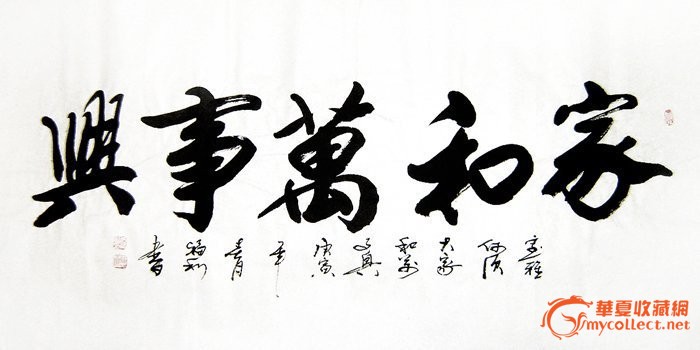 家和萬事興
室雅
何須
大家
和萬
事興
庚寅
年
春月
福利
書
華夏收藏網
mycollect.net